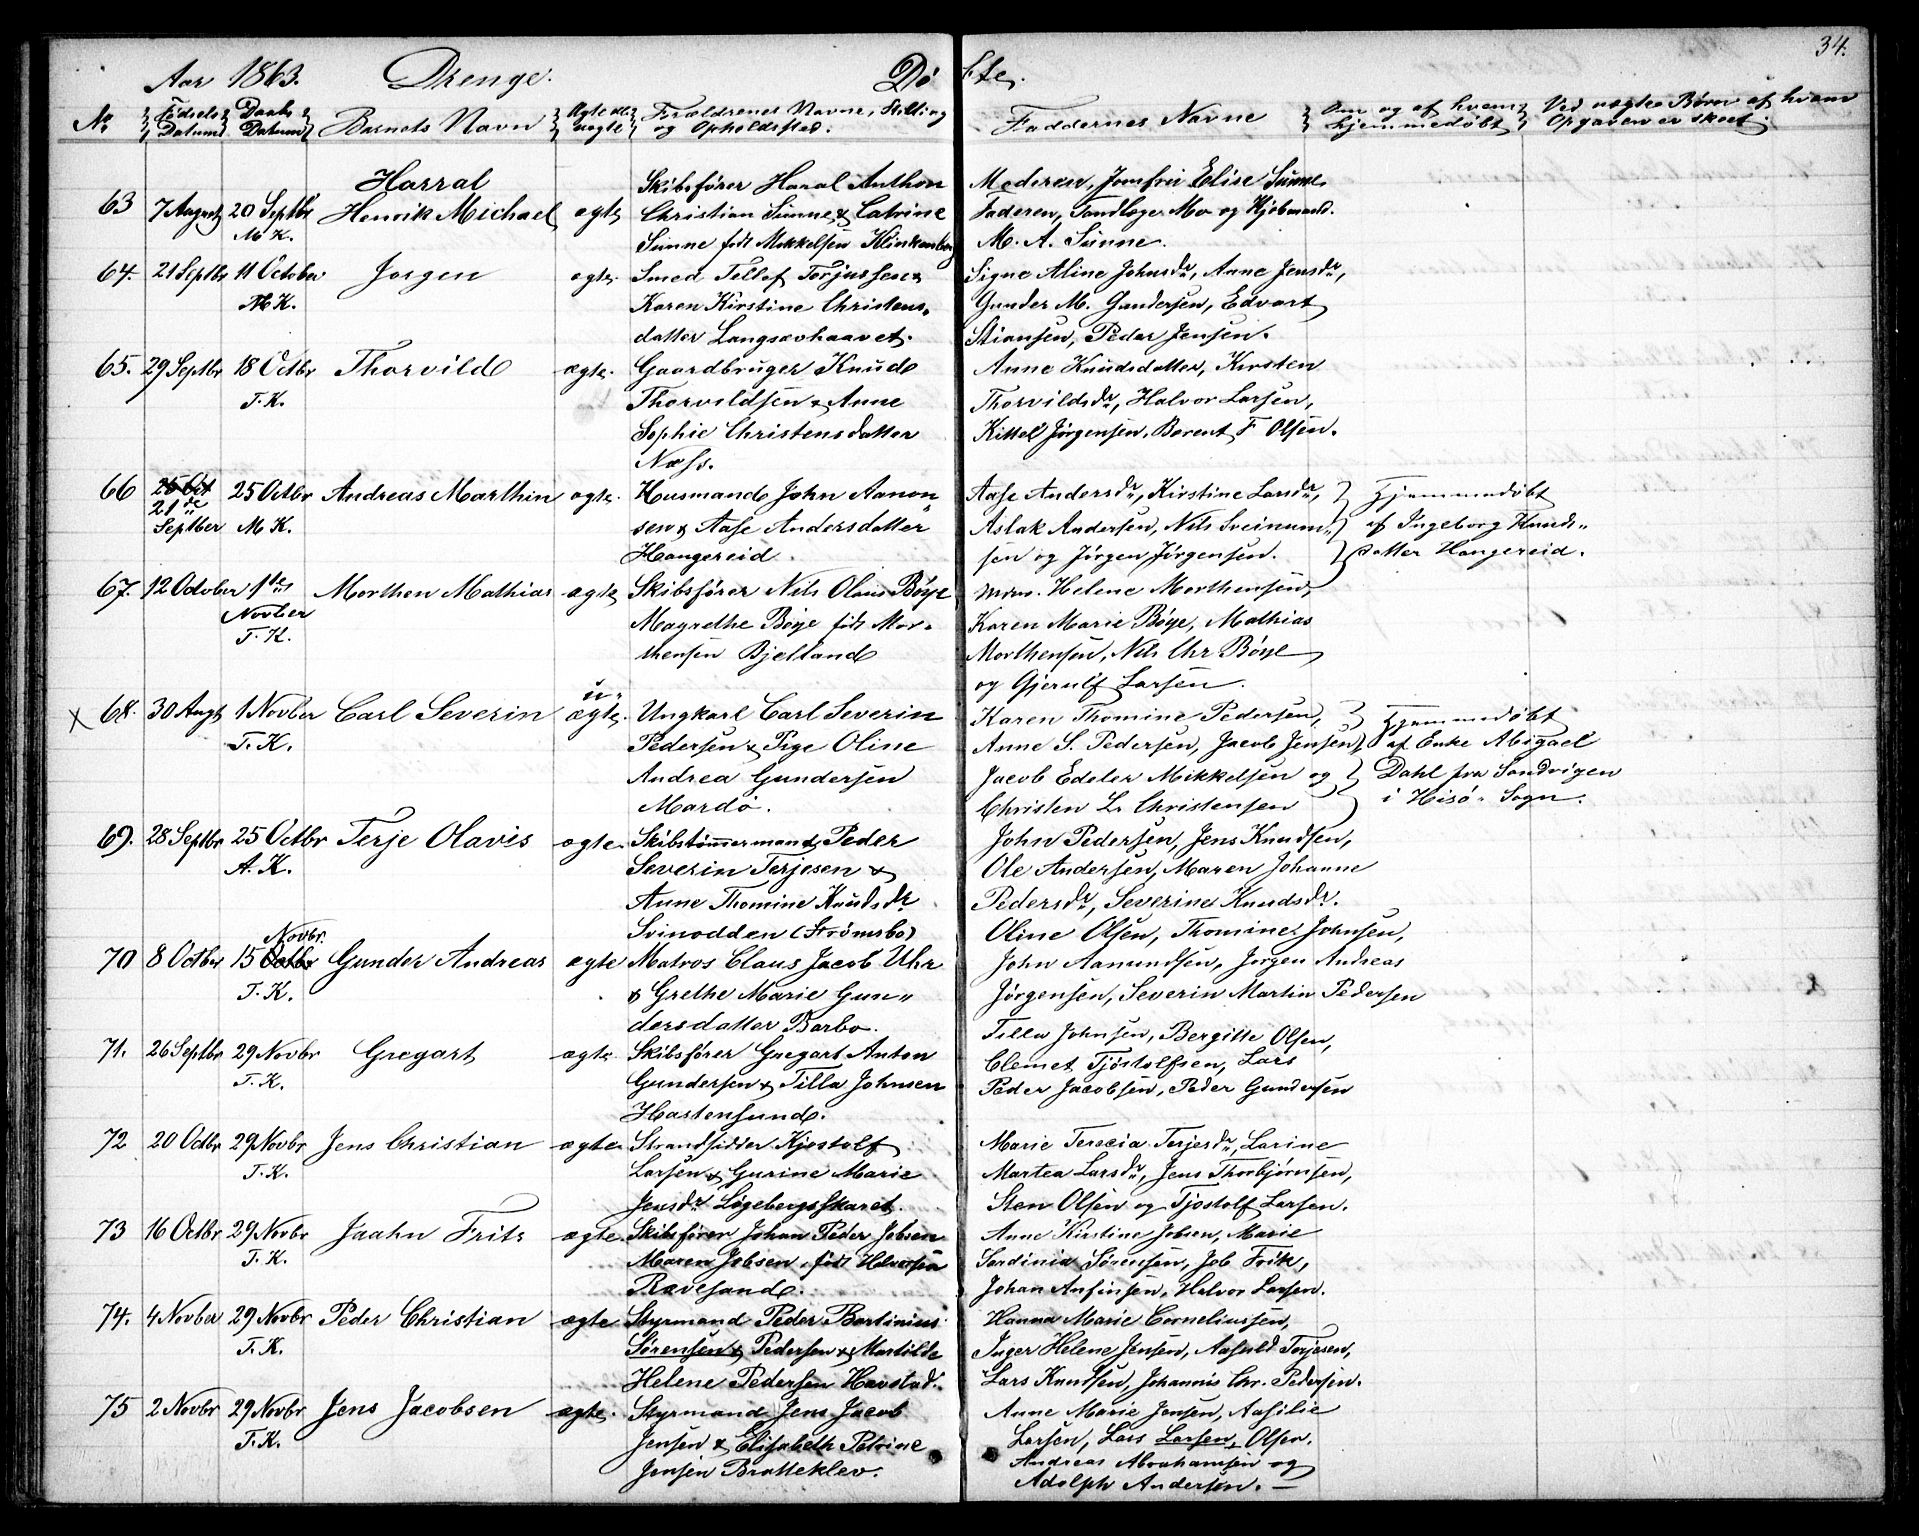 34.
Aar 1863. Drenge. Døbte.
No. Fødsels Datum Daabs Datum Barnets Navn Ægte ell. uægte Forældrenes Navne, Stilling og Opholdssted. Faddernes Navne Om og af hvem hjemmedøbt Ved uægte Børn af hvem Opgaven er skeet.
Harral Skibsfører Haral Anthon Moderen, Jomfru Elise Sunne
63 7 August 20 Septbr Henrik Michael ægte Christian Sunne & Catrine Faderen, Tandlæge Mo og Kjøbmand.
M K. Sunne født Mikkelsen Klinkenberg M. A. Sunne.
64. 21 Septbr 11 October Jørgen ægte. Smed Tellef Torjussen & Signe Aline Johnsdr, Anne Jensdr,
M K. Karen Kirstine Christens- Gunder M. Gundersen, Edvart
datter Langsævhaavet. Stiansen, Peder Jensen.
65. 29 Septbr 18 Octbr Thorvild ægte. Gaardbruger Knud Anne Knudsdatter, Kirsten
T. K. Thorvildsen & Anne Thorvildsdr, Halvor Larsen,
Sophie Christensdatter Kittel Jørgensen, Berent F Olsen.
Næss.
66 25 Oct 25 Octbr Andreas Marthin ægte. Husmand John Aanon- Aase Andersdr, Kirstine Larsdr, Hjemmedøbt
21de Septber M K. sen & Aase Andersdatter Aslak Andersen, Nils Sveinum- af Ingeborg Knuds-
Hangereid. sen og Jørgen Jørgensen. datter Hangereid.
67. 12 October 1ste Morthen Mathias ægte Skibsfører Nils Olaus Bøye Mdm. Helene Morthensen,
Novber Magrethe Bøye født Mor- Karen Marie Bøye, Mathias
T. K. thensen Bjelland Morthensen, Nils Chr Bøye
og Gjerulf Larsen.
u-
x 68. 30 Augt 1 Novber Carl Severin ægte. Ungkarl Carl Severin Karen Thomine Pedersen, Hjemmedøbt
T. K. Pedersen & Pige Oline Anne S. Pedersen, Jacob Jensen, af Enke Abigael
Andrea Gundersen Jacob Edeler Mikkelsen og Dahl fra Sandvigen
Mardø. Christen L. Christensen i Hisø - Sogn.
69. 28 Septbr 25 Octbr Terje Olavis ægte. Skibstømmermand Peder John Pedersen, Jens Knudsen,
A. K. Severin Terjesen & Ole Andersen, Maren Johanne
Anne Thomine Knudsdr Pedersdr, Severine Knudsdr.
Novbr. Svinodden (Strømsbo) Oline Olsen, Thomine Johnsen,
70 8 Octbr 15 Octbr Gunder Andreas ægte Matros Claus Jacob Uhr John Aanundsen, Jørgen Andreas
T. K. & Grethe Marie Gun- Jørgensen, Severin Martin Pedersen
dersdatter Barbo.
71. 26 Septbr 29 Novbr Gregart ægte. Skibsfører Gregart Anton Tilla Johnsen, Bergitte Olsen,
T. K. Gundersen & Tilla Johnsen Clemet Tjøstolfsen, Lars
Hastensund. Peder Jacobsen, Peder Gundersen
72 20 Octbr 29 Novbr Jens Christian ægte. Strandsidder Kjøstolf Marie Terecia Terjesdr, Larine
T. K. Larsen & Gurine Marie Martea Larsdr, Jens Thorbjørnsen,
Jensdr Løgebergsskaret. Sten Olsen og Tjøstolf Larsen.
73 16 Octbr 29 Novbr Jaahn Frits ægte. Skibsfører Johan Peder Jobsen Anne Kirstine Jobsen, Marie
T. K. Maren Jobsen, født Halvorsen Sardinia Sørensen, Job Frik,
Rævesand. Johan Anfinsen, Halvor Larsen.
74. 4 Novber 29 Novbr Peder Christian ægte. Styrmand Peder Bartinius Hanna Marie Corneliussen,
T. K. Sørensen & Pedersen & Martilde Inger Helene Jensen, Aasuld Terjesen,
Helene Pedersen Havstad. Lars Knudsen, Johannis Chr. Pedersen.
75 2 Novbr 29 Novbr Jens Jacobsen ægte. Styrmand Jens Jacob Anne Marie Jensen, Aasilie
T. K. Jensen & Elisabeth Petrine Larsen, Lars Larsen, Olsen.
Jensen Bratteklev. Andreas Abrahamsen og
Adolph Andersen. —